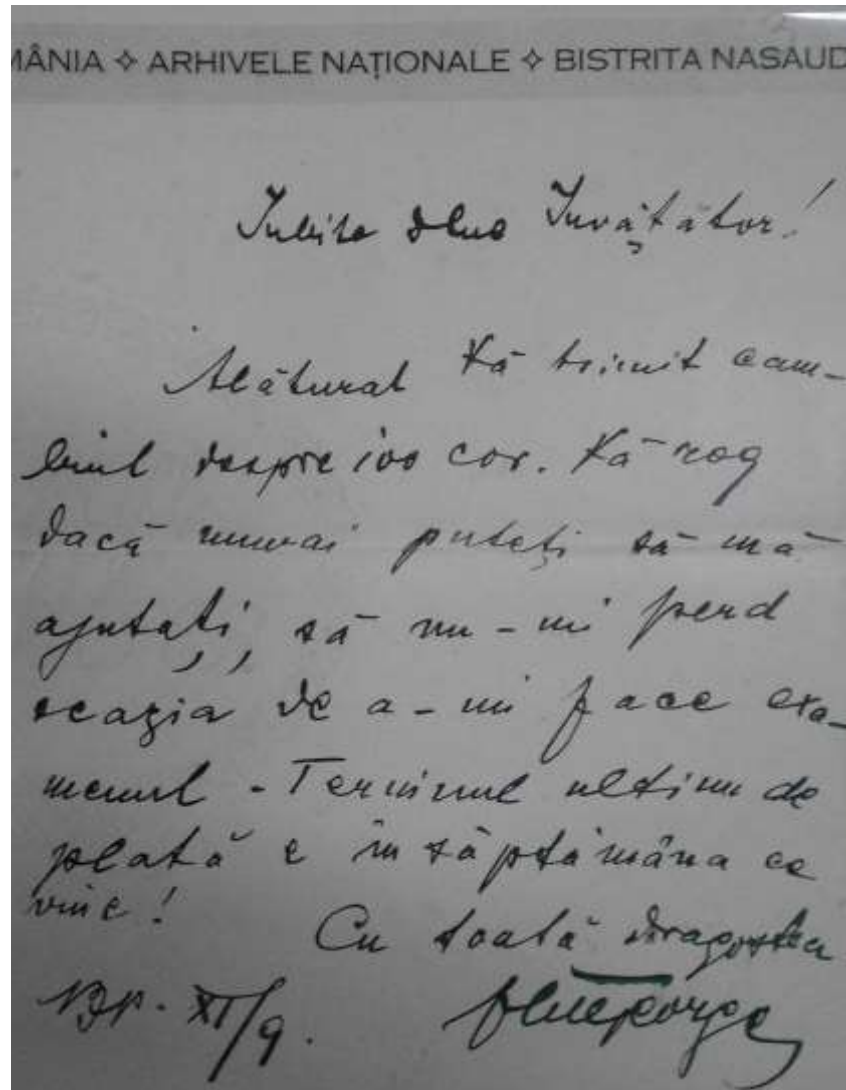 MÂNIA ✧ ARHIVELE NAȚIONALE ✧ BISTRITA NASAUD
Iubite dle Învățător!
Alăturat Vă trimit cam-
biul despre 100 cor. Vă rog
dacă numai puteți să mă
ajutați, să nu-mi perd
ocazia de a-mi face exa-
menul - Terminul ultim de
plată e în săptămâna ce
vine!
Cu toată dragostea
Bp. XI/9.